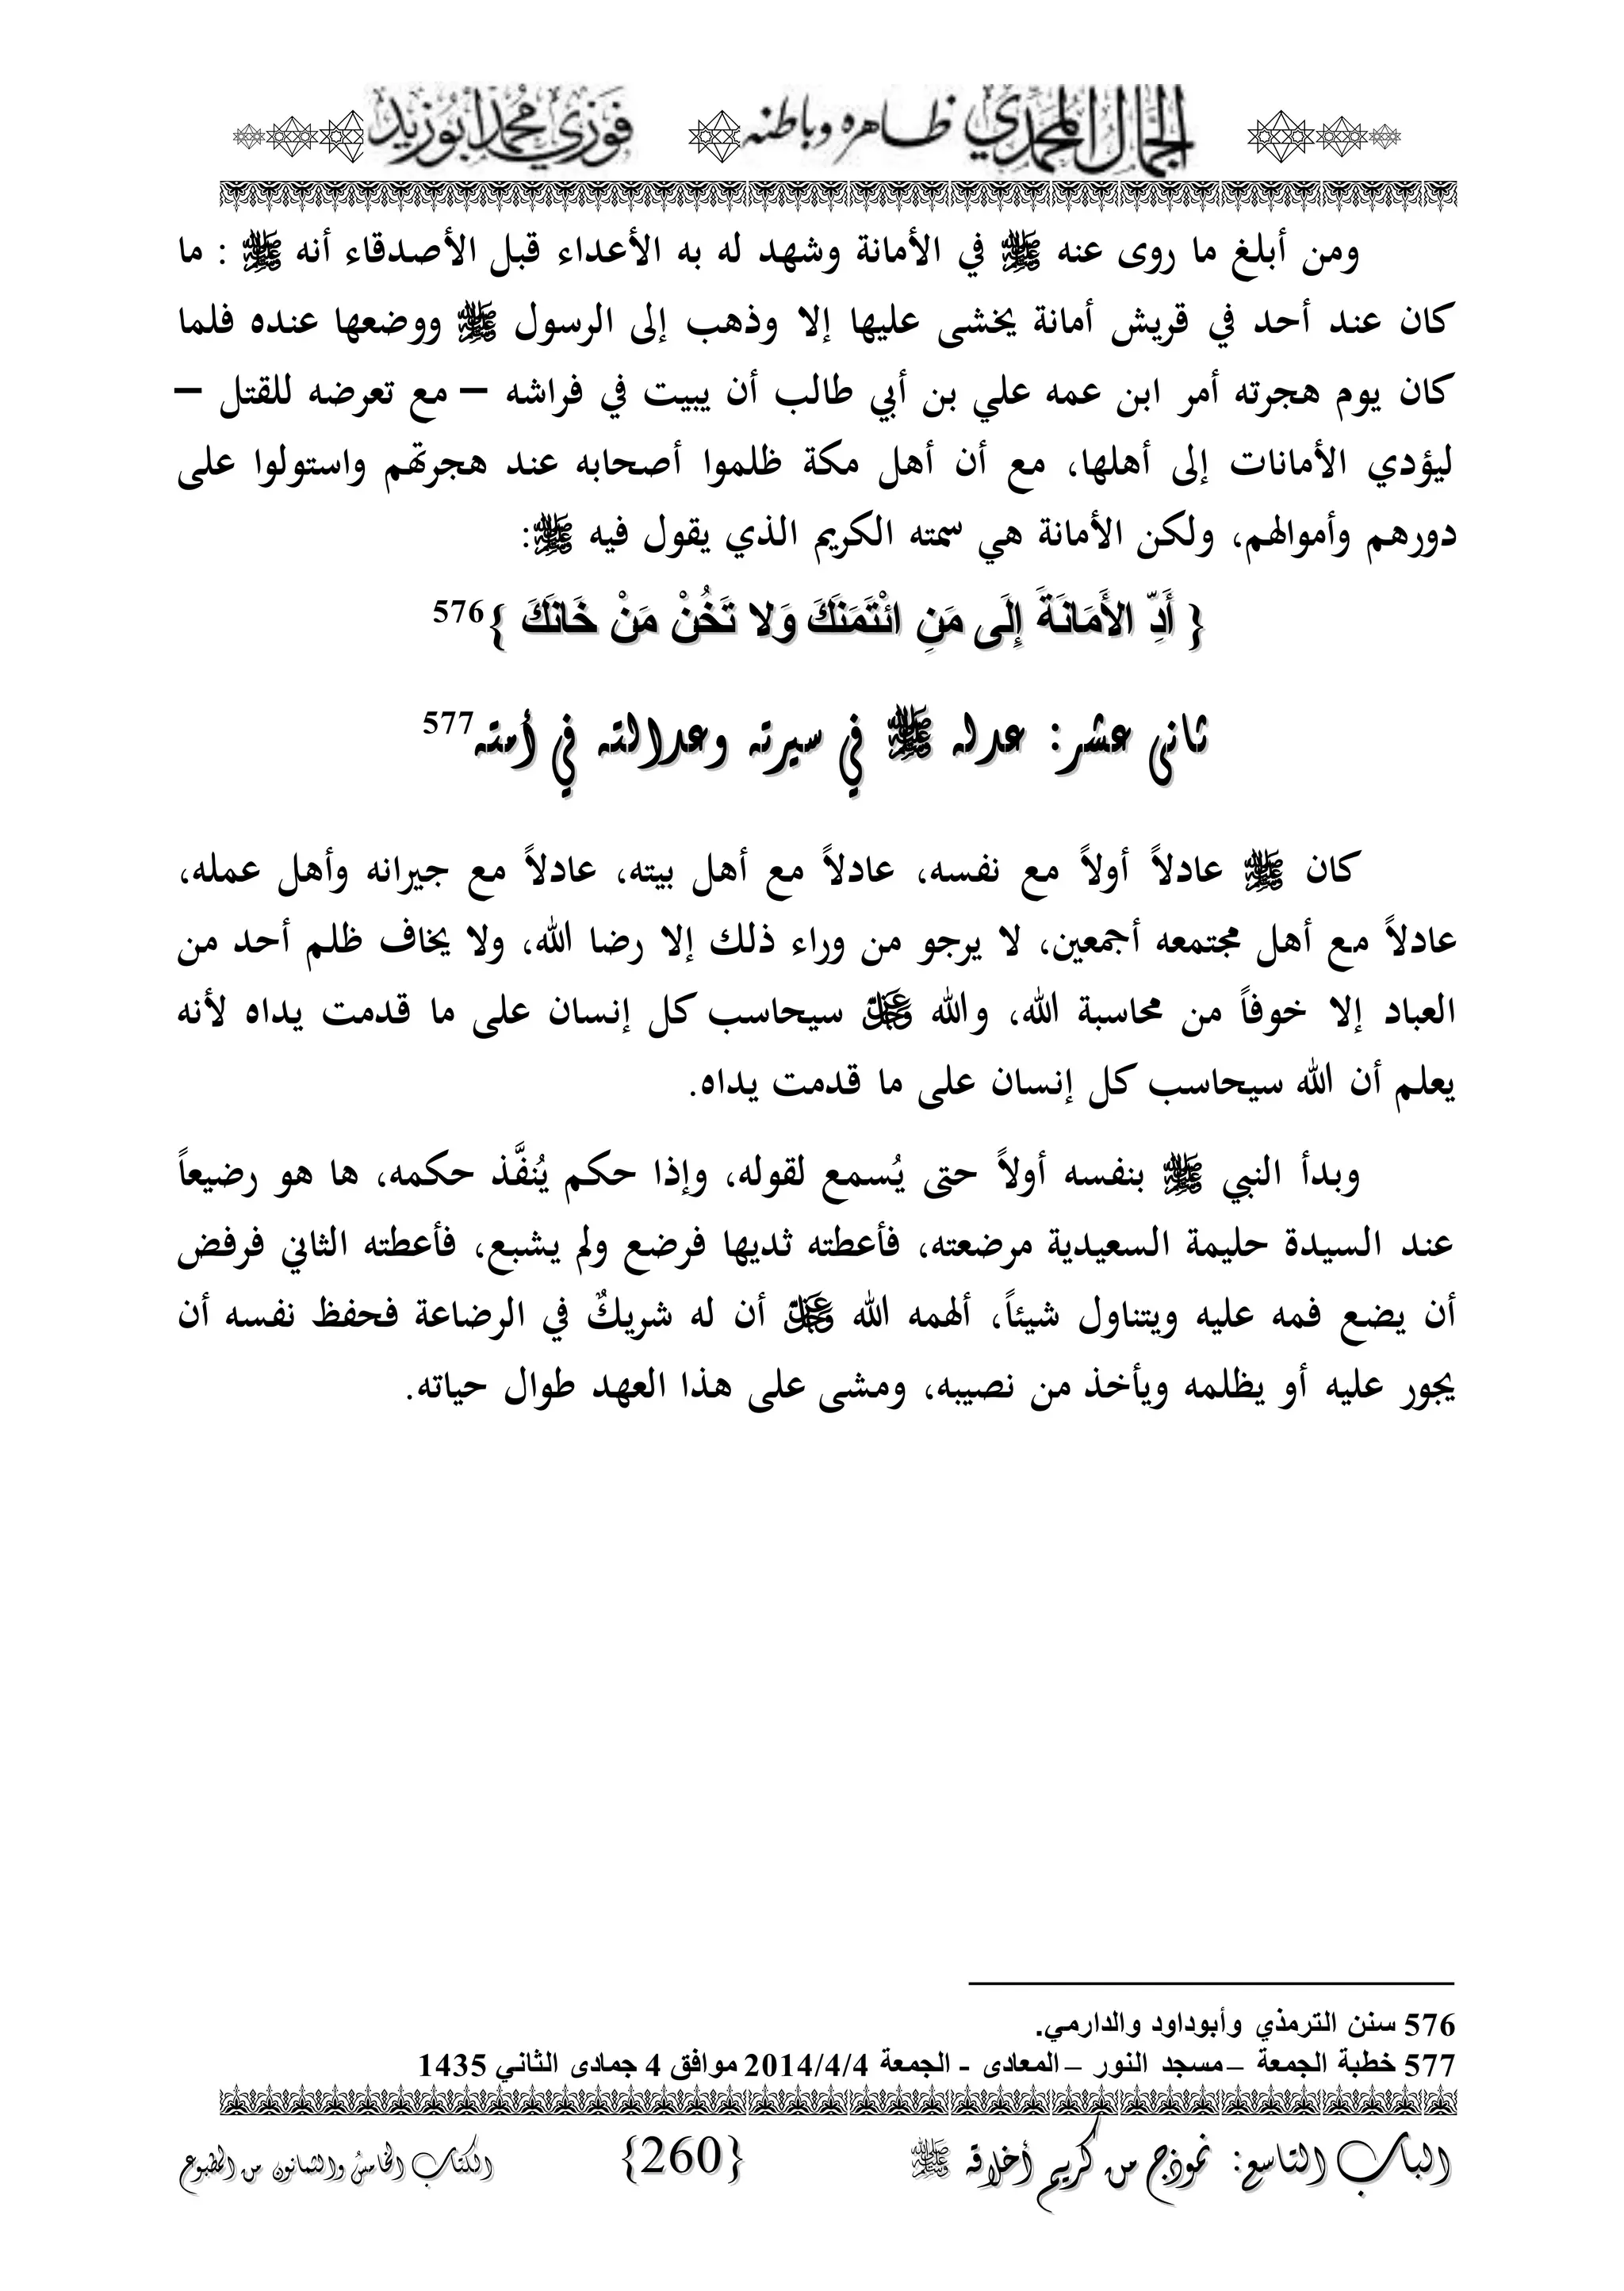 الجمال المحمدي ظاهره وباطنه فوزي محمد أبوزيد
ومن أبلغ ما روى عنه ﷺ في الأمانة وشهد له به الأعداء قبل الأصدقاء أنه ﷺ : ما
كان عند أحد في قريش أمانة يخشى عليها إلا وذهب إلى الرسول ﷺ ووضعها عنده فلما
كان يوم هجرته أمر ابن عمه علي بن أبي طالب أن يبيت في فراشه – مع تعرضه للقتل –
ليؤدي الأمانات إلى أهلها، مع أن أهل مكة ظلموا أصحابه عند هجرتهم واستولوا على
دورهم وأموالهم، ولكن الأمانة هي سمته الكريم الذي يقول فيه ﷺ:
{ أَدِّ الأَمَانَةَ إِلَى مَنِ ائْتَمَنَكَ وَلا تَخُنْ مَنْ خَانَكَ }576
ثانى عشر: عدله ﷺ في سيرته وعدالته في أمته577
كان ﷺ عادلاً أولاً مع نفسه، عادلاً مع أهل بيته، عادلاً مع جيرانه وأهل عمله،
عادلاً مع أهل مجتمعه أجمعين، لا يرجو من وراء ذلك إلا رضا الله، ولا يخاف ظلم أحد من
العباد إلا خوفاً من محاسبة الله، والله عز وجل سيحاسب كل إنسان على ما قدمت يداه لأنه
يعلم أن الله سيحاسب كل إنسان على ما قدمت يداه.
وبدأ النبي ﷺ بنفسه أولاً حتى يُسمع لقوله، وإذا حكم يُنفَّذ حكمه، ها هو رضيعاً
عند السيدة حليمة السعيدية مرضعته، فأعطته ثديها فرضع ولم يشبع، فأعطته الثاني فرفض
أن يضع فمه عليه ويتناول شيئاً، ألهمه الله عز وجل أن له شريكٌ في الرضاعة فحفظ نفسه أن
يجور عليه أو يظلمه ويأخذ من نصيبه، ومشى على هذا العهد طوال حياته.
576 سنن الترمذي وأبوداود والدارمي.
577 خطبة الجمعة – مسجد النور – المعادى - الجمعة 2014/4/4 موافق 4 جمادى الثاني 1435
الباب التاسع: نموذج من كريم أخلاقه ﷺ {260} الكتاب الخامسُ والثمانون من المطبوع